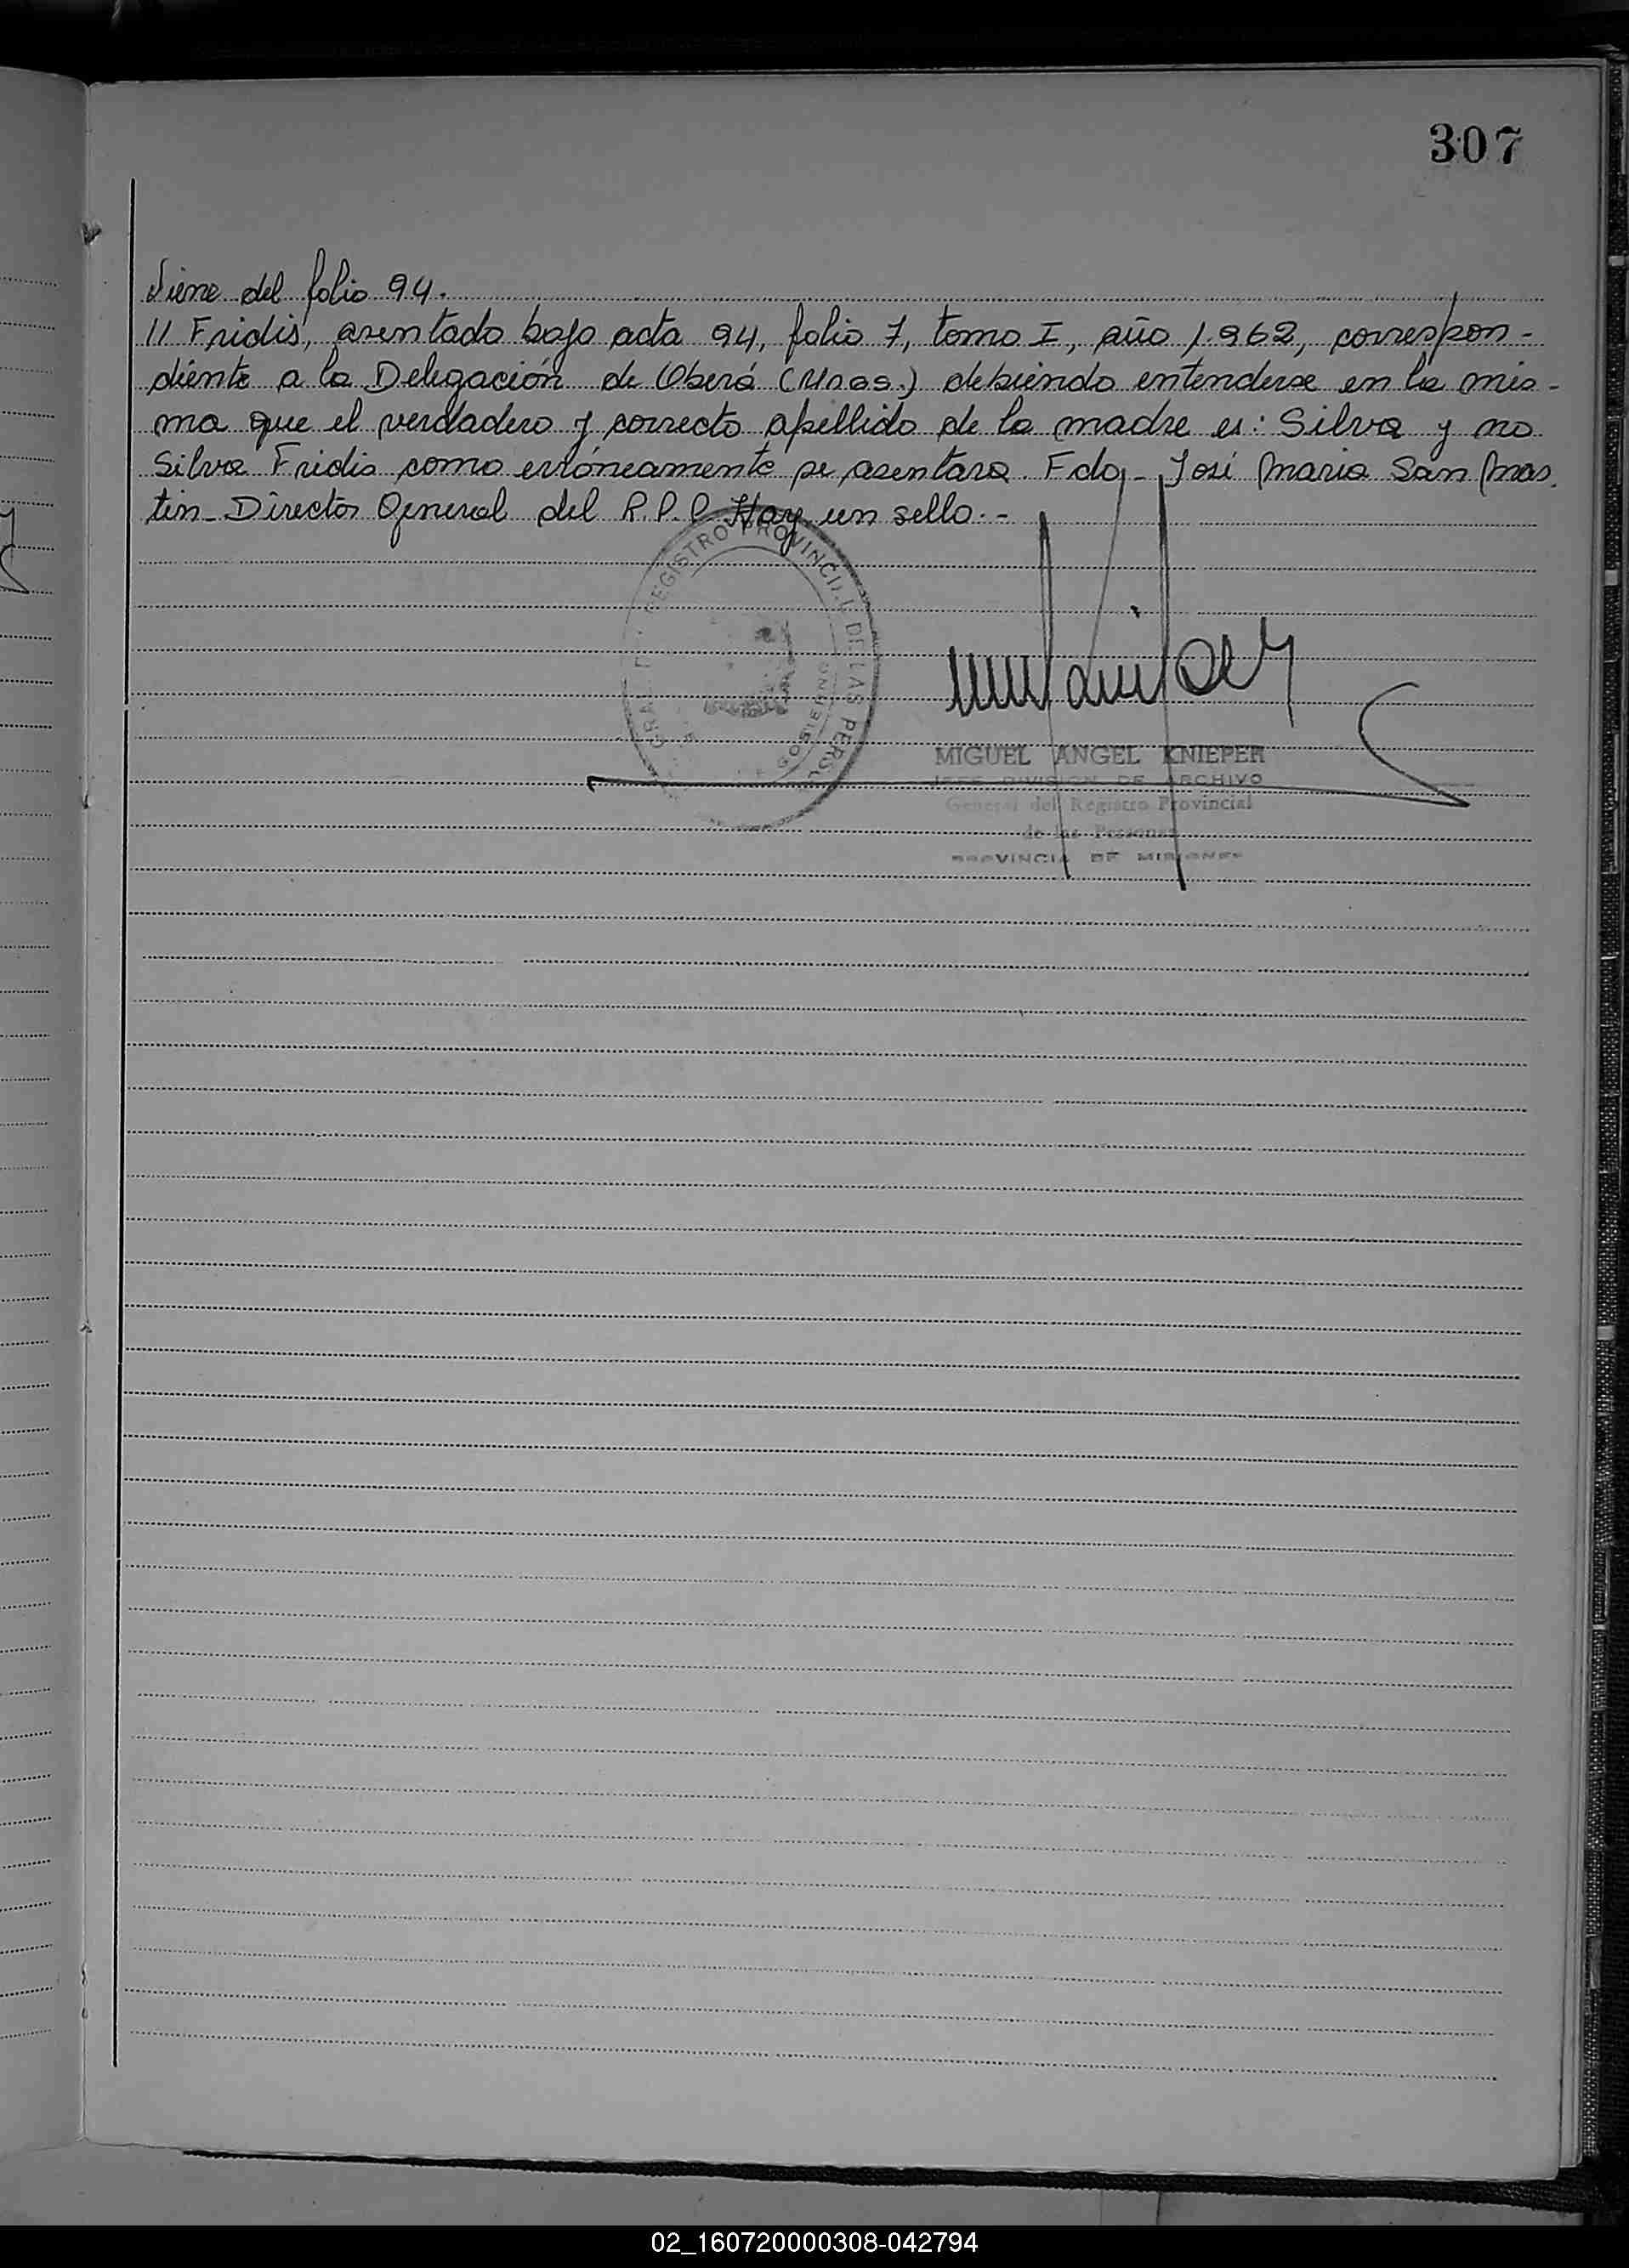 307
Viene del folio 94.
// Fridis, asentado bajo acta 94, folio 7, tomo I, año 1.962, correspon-
diente a la Delegación de Oberá (Mnes.) debiendo entenderse en la mis-
ma que el verdadero y correcto apellido de la madre es: Silva y no
Silva Fridis como erróneamente se asentara. Fdo.- José Maria San Mar
tin- Director General del R.P.P. Hay un sello.-
REGISTRO PROVINCIAL DE LAS PERSO
GOBIERNO
MIGUEL ANGEL KNIEPER
JEFE DIVISION DE ARCHIVO
General del Registro Provincial
de las Personas
PROVINCIA DE MISIONES
02_160720000308-042794